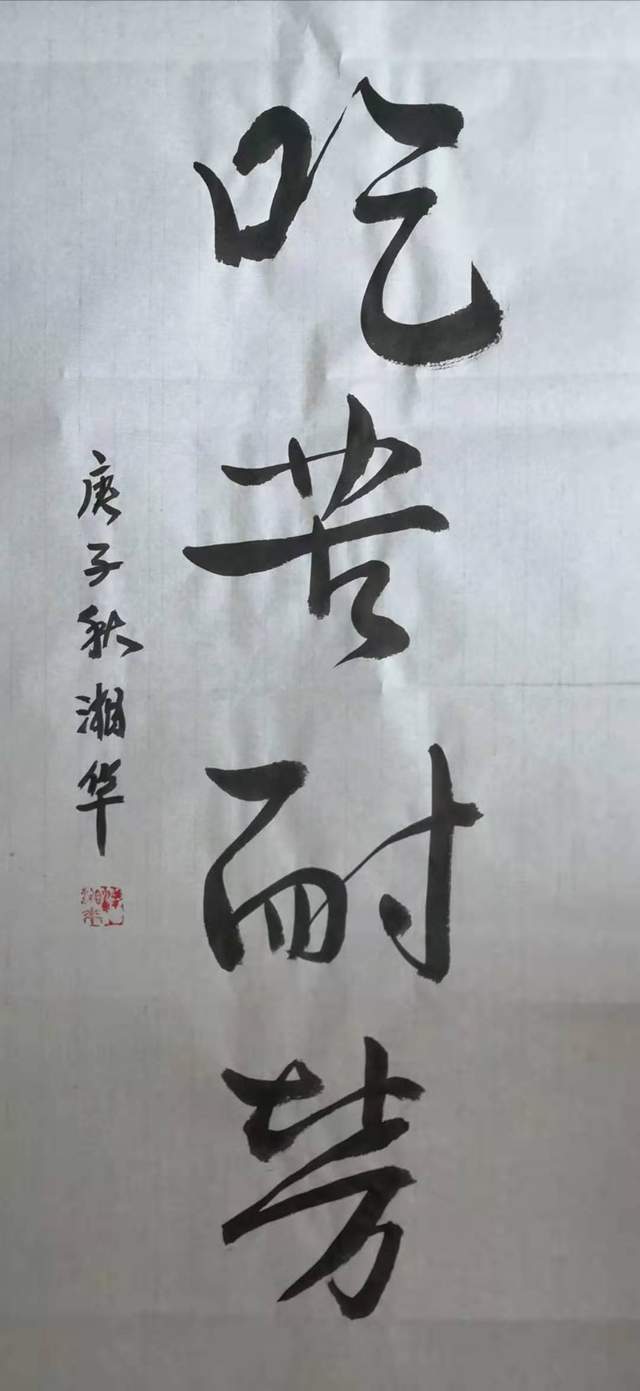 吃苦耐劳
庚子秋湘华